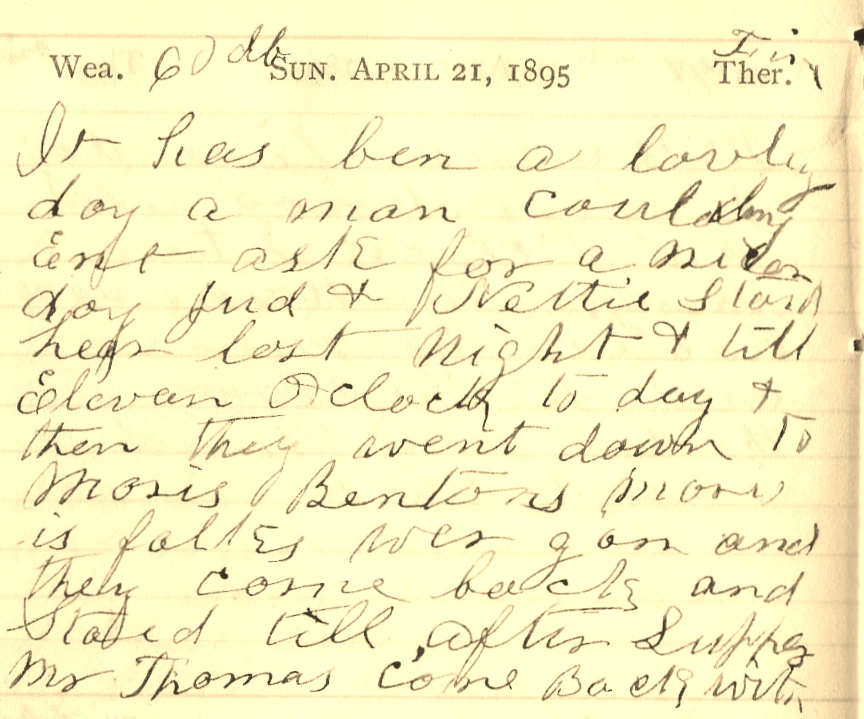 Wea. 60 SUN. APRIL 21, 1895 Ther.
It has ben a lovly
day a man could
Ent ask for a nicer
day Jud & Nettie Staid
hear last Night & till
Elevan Oclock to day &
then they went down to
Mosis Bentons Mos
is folks wer gon and
they come back and
Staed till after Supper
Mr Thomas come Back with